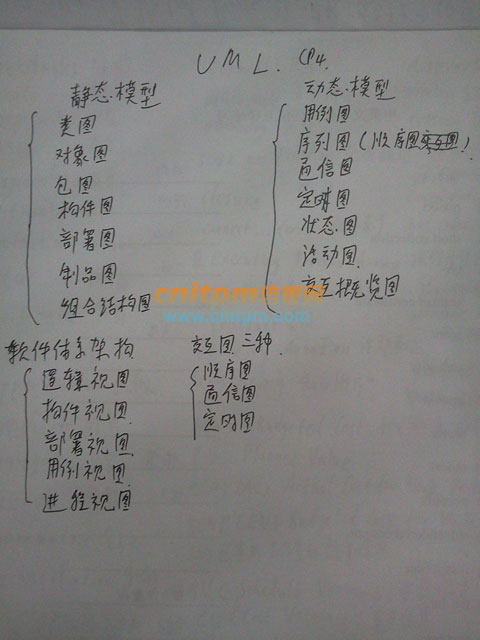 UML. CP4.
静态模型
类图
对象图
包图
构件图
部署图
制品图
组合结构图
动态模型
用例图
序列图(顺序图交互图)
通信图
定时图
状态图
活动图
交互概览图
软件体系架构
逻辑视图
构件视图
部署视图
用例视图
进程视图
交互图三种.
顺序图
通信图
定时图
www.cnitpm.com